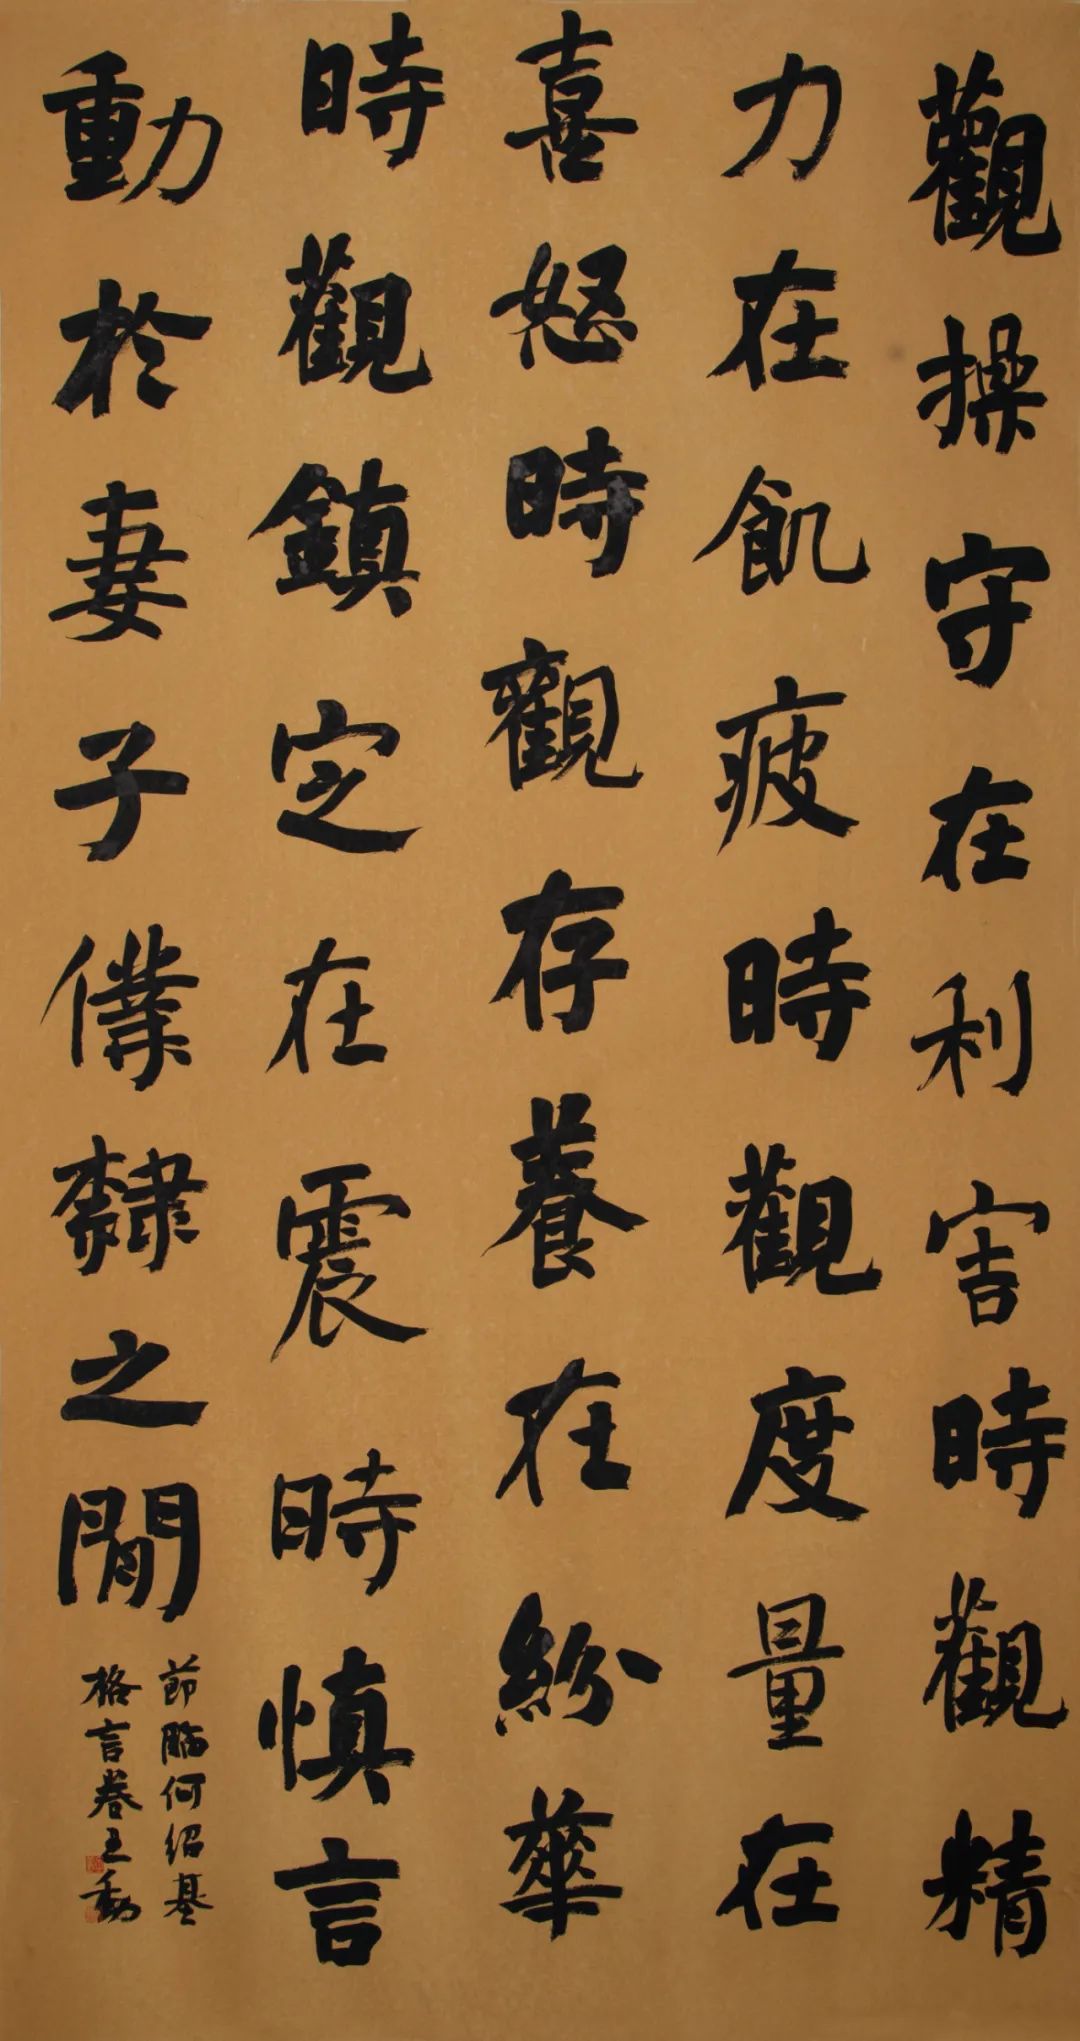 觀操守在利害時觀精
力在飢疲時觀度量在
喜怒時觀存養在紛華
時觀鎮定在震時慎言
動於妻子僕隸之閒
節臨何紹基
格言卷王勳